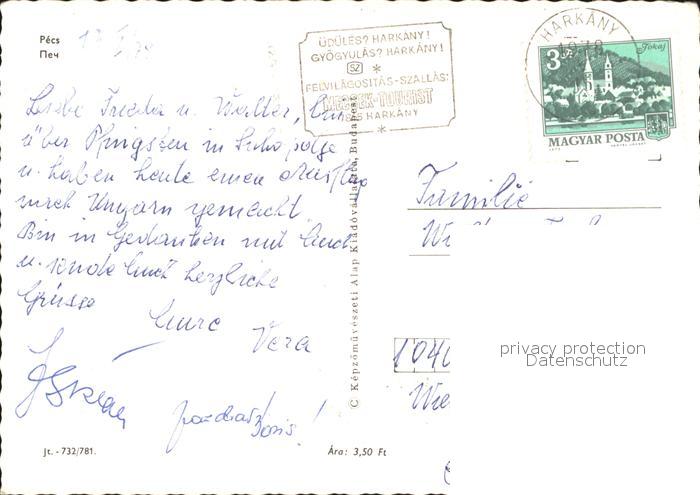 Pécs
Печ
ÜDÜLÉS? HARKÁNY!
GYÓGYULÁS? HARKÁNY!
SZ
FELVILÁGOSITÁS-SZÁLLÁS:
MECSEK-TOURIST
HARKÁNY
HARKÁNY
3 Ft
Tokaj
MAGYAR POSTA
Liebe Frieda u. Walter, bin
über Pfingsten in
u. haben heute einen Ausflug
nach Ungarn gemacht
Bin in Gedanken mit Euch
u. sende Euch herzliche
Grüsse
Eure
Vera
Boris!
Familie
Wi
1040
Wie
© Képzőművészeti Alap Kiadóvállalata, Budapest
privacy protection
Datenschutz
Jt. - 732/781.
Ára: 3,50 Ft